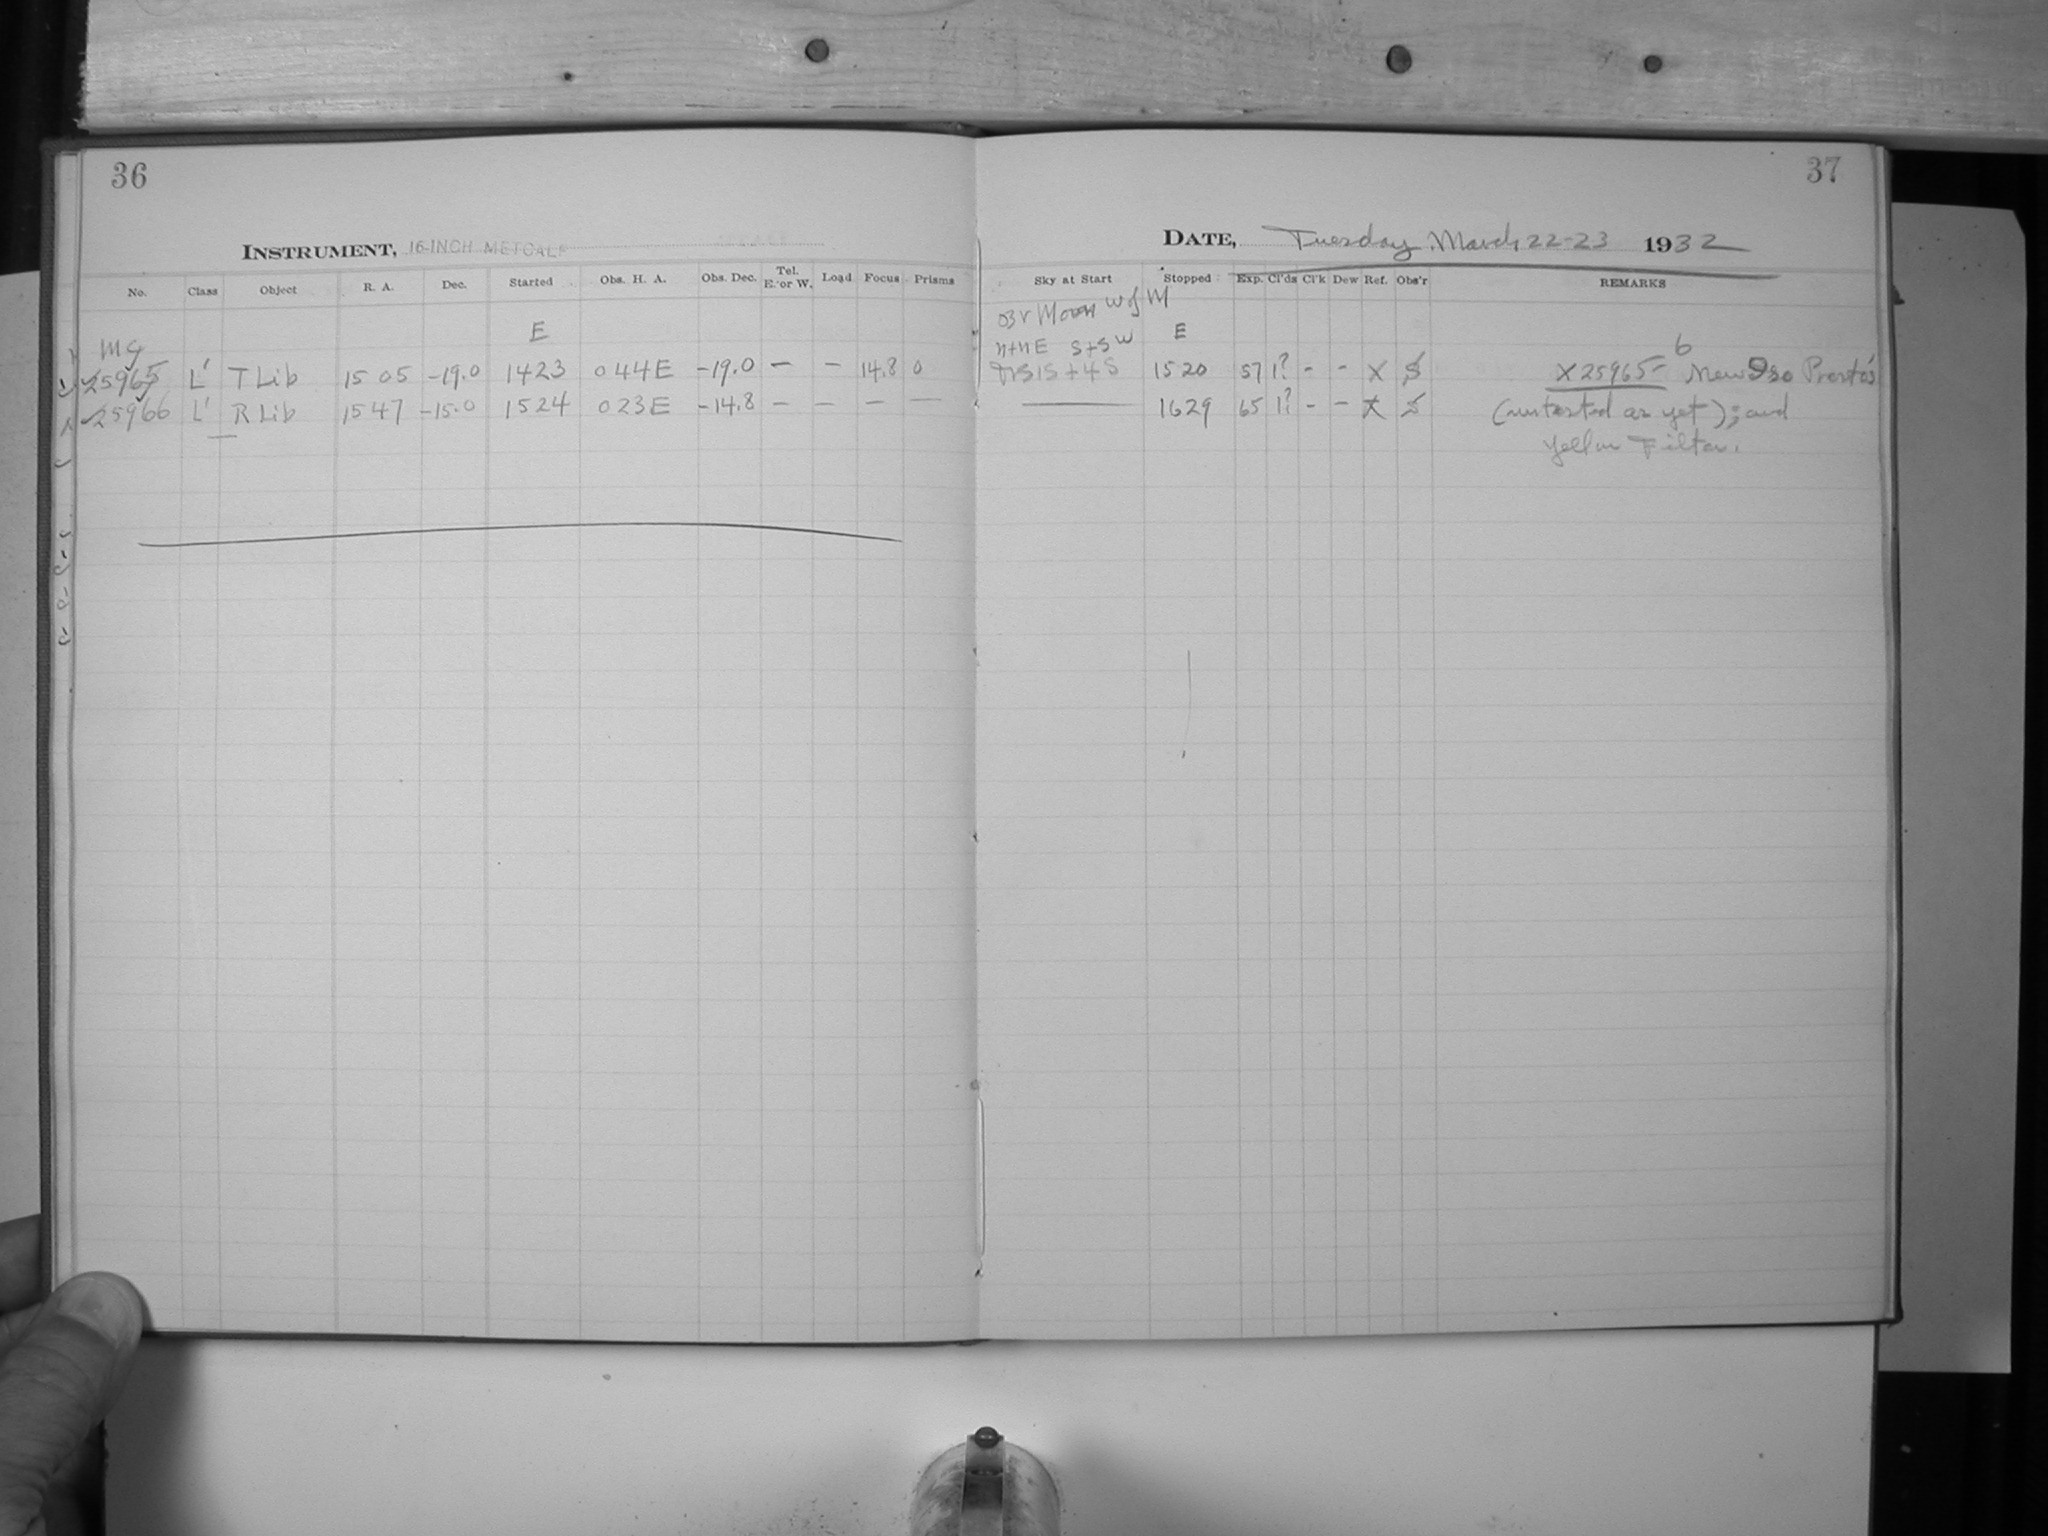 36
INSTRUMENT, 16-INCH METCALF
No. Class Object R. A. Dec. Started Obs. H. A. Obs. Dec. Tel. E. or W. Load Focus Prisms
E
MC
25965 L' T Lib 15 05 -19.0 1423 0 44 E -19.0 — – 14.8 0
25966 L' R Lib 15 47 -15.0 1524 0 23 E -14.8 — — — —
37
DATE, Tuesday March 22-23 1932
Sky at Start Stopped Exp. Cl'ds Cl'k Dew Ref. Obs'r REMARKS
Moon W of M
n+nE S+SW E
1520 57 1? - - X S X 25965-6 New Iso Presto's
1629 65 1? - - X S (untested as yet); and
Yellow Filter.